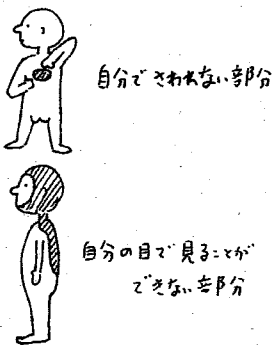 自分でさわれない部分
自分の目で見ることが
できない部分